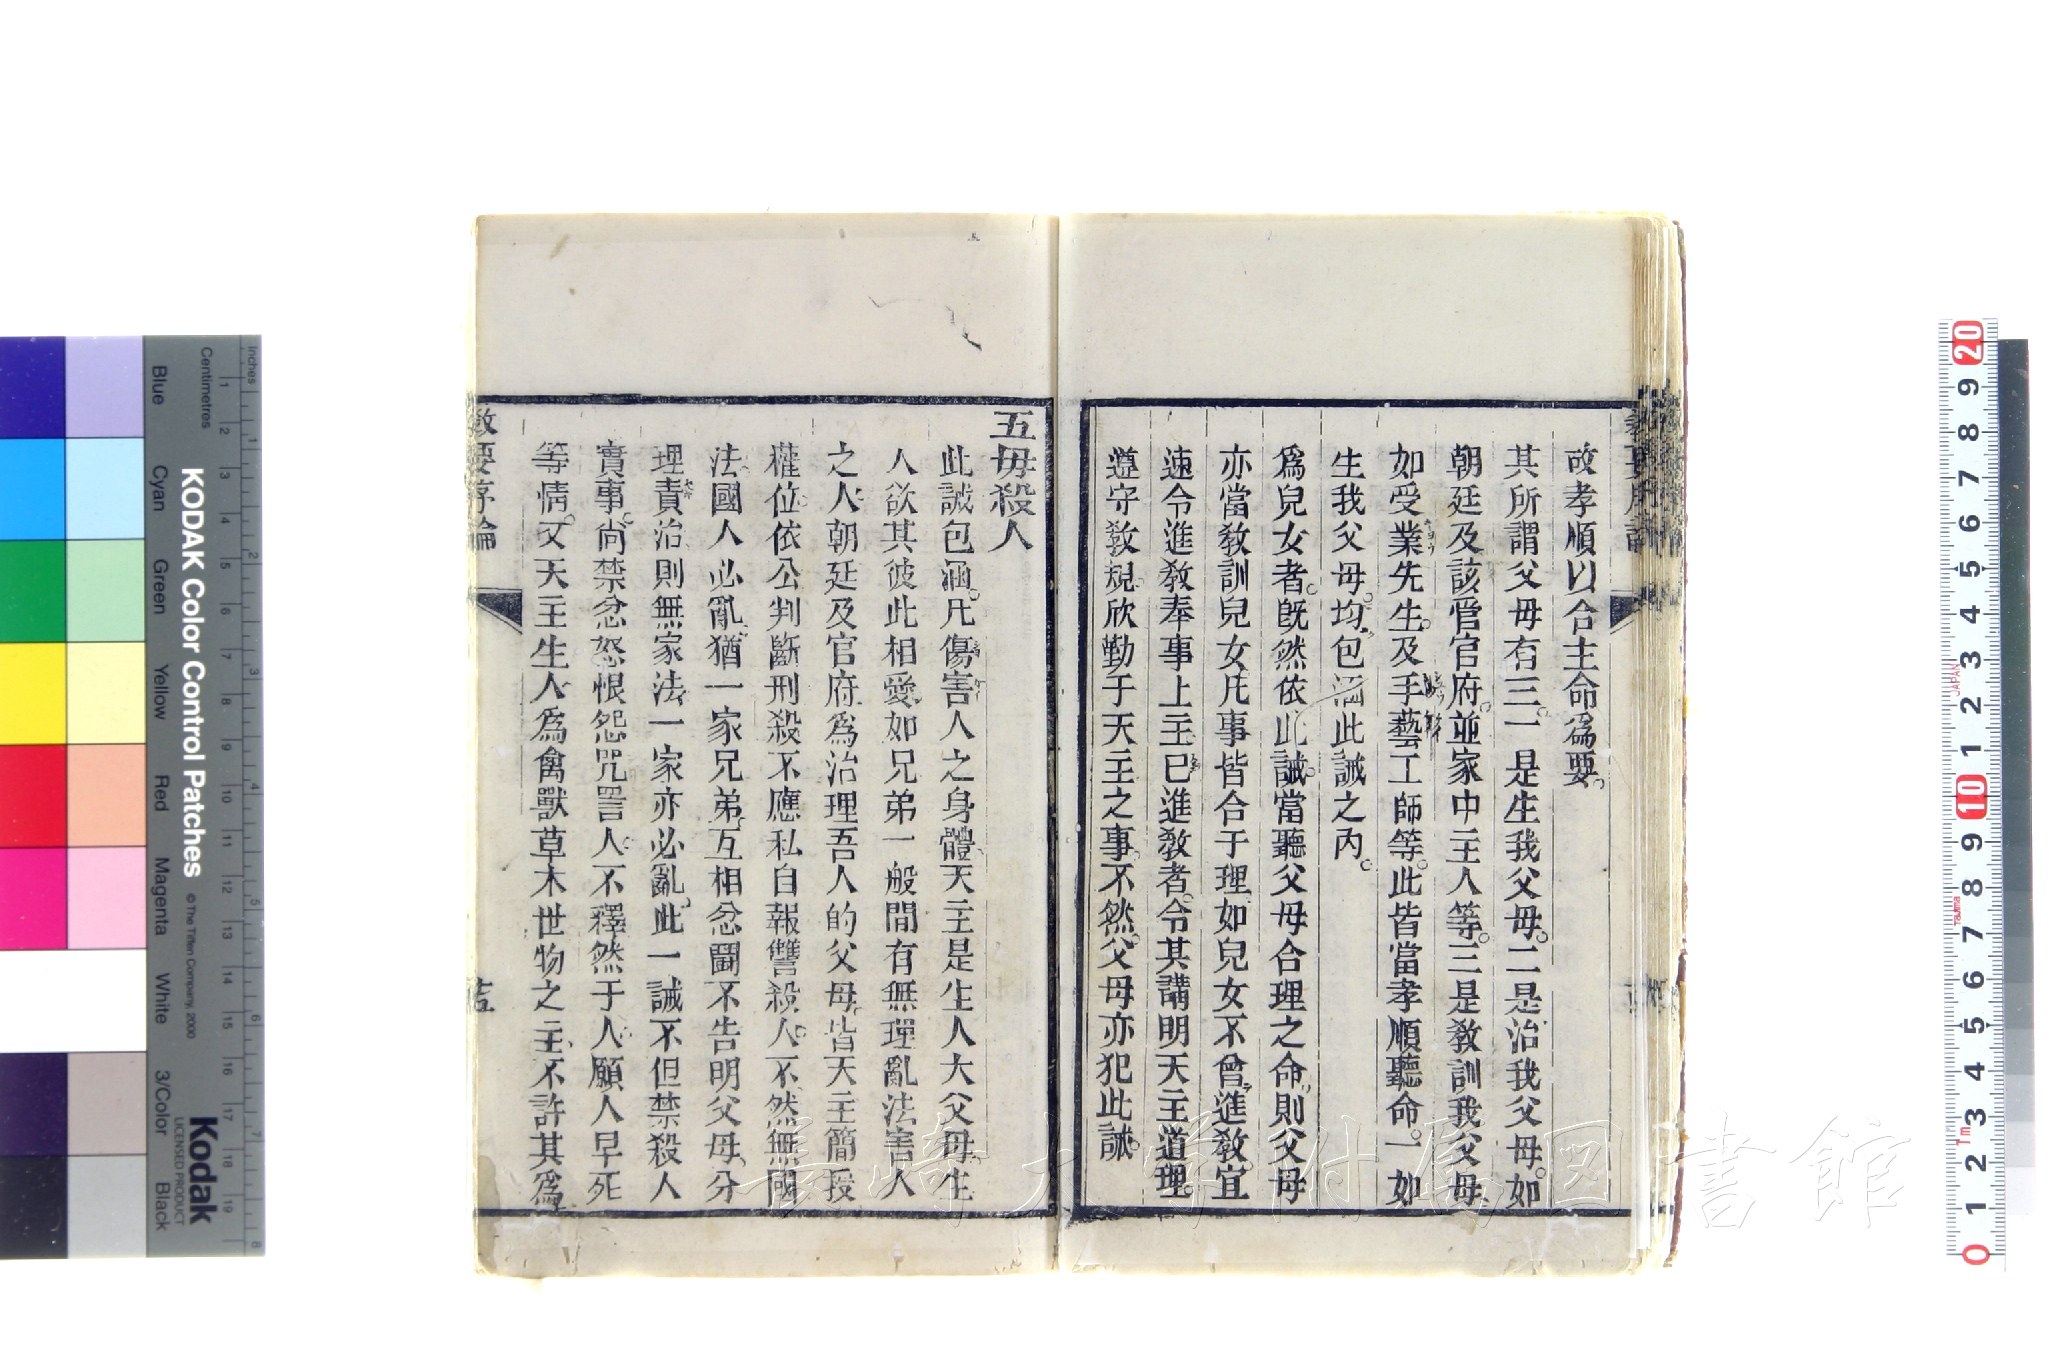 故孝順以合主命爲要。
其所謂父母有三。一是生我父母。二是治我父母。如
朝廷及該管官府。並家中主人等。三是敎訓我父母。
如受業先生。及手藝工師等。此皆當孝順聽命。一如
生我父母。均包涵此誡之內。
爲兒女者。旣然依此誡。當聽父母合理之命。則父母
亦當敎訓兒女。凡事皆合于理。如兒女不曾進敎。宜
速令進敎奉事上主。已進敎者。令其講明天主道理。
遵守敎規。欣勤于天主之事。不然。父母亦犯此誡。
五毋殺人
此誡包涵。凡傷害人之身體。天主是生人大父母。生
人欲其彼此相愛。如兄弟一般。間有無理亂法害人
之人。朝廷及官府。爲治理吾人的父母。皆天主簡授
權位。依公判斷刑殺。不應私自報讐殺人。不然無國
法。國人必亂。猶一家兄弟。互相忿鬪。不告明父母。分
理責治。則無家法。一家亦必亂。此一誡不但禁殺人
實事。尚禁忿怒恨怨咒詈人。不釋然于人。願人早死
等情。又天主生人。爲禽獸草木世物之主。不許其爲
敎要序論
KODAK Color Control Patches
© The Tiffen Company, 2000
Kodak
LICENSED PRODUCT
Inches
Centimetres
Blue
Cyan
Green
Yellow
Red
Magenta
White
3/Color
Black
JAPAN
Tajima
長崎大学附属図書館